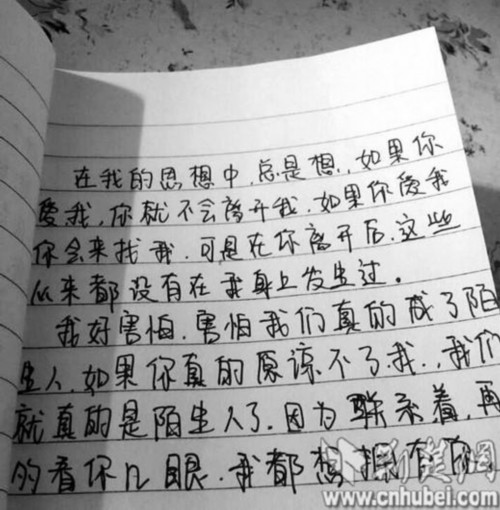 在我的思想中.总是想.如果你
爱我,你就不会离开我.如果你爱我
你会来找我.可是在你离开后.这些
从来都没有在我身上发生过。
我好害怕.害怕我们真的成了陌
生人.如果你真的原谅不了我.,我们
就真的是陌生人了.因为联系着,再
的看你几眼.我都想拥有
荆楚网
www.cnhubei.com